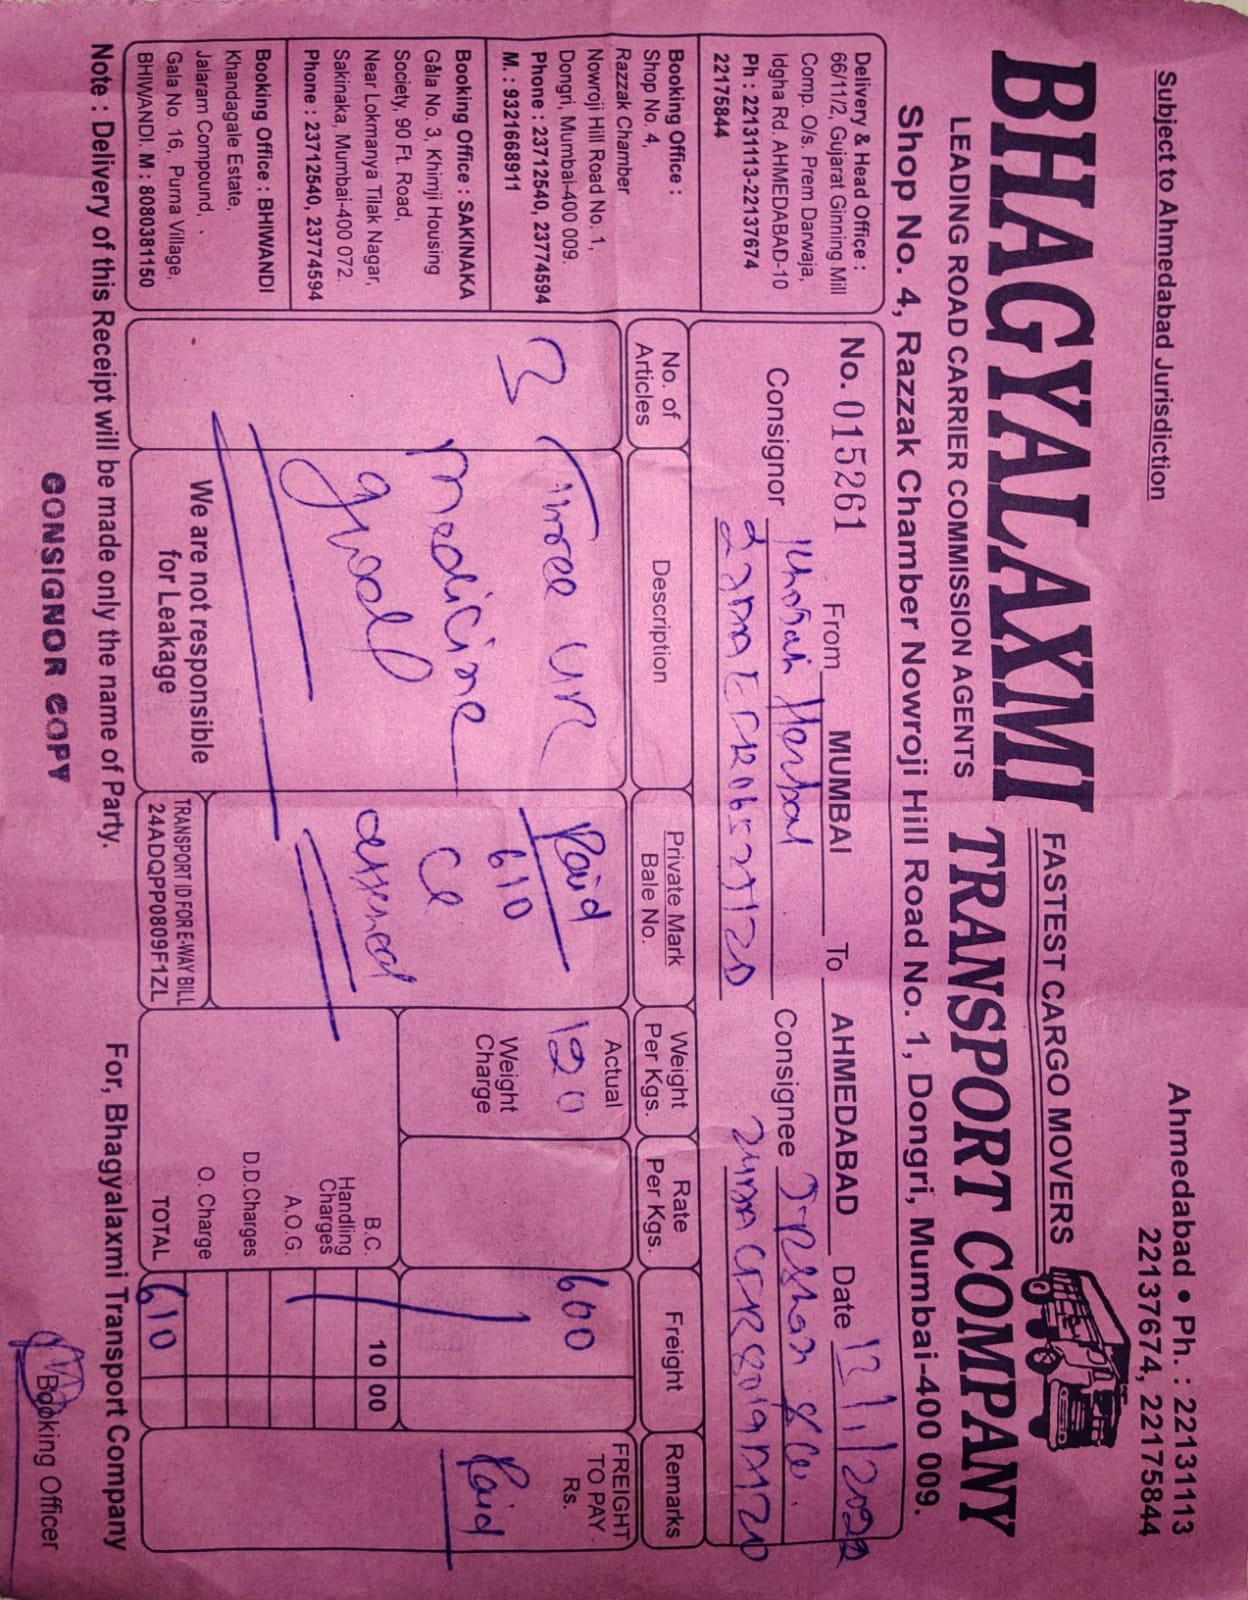 Subject to Ahmedabad Jurisdiction
Ahmedabad • Ph. : 22131113
22137674, 22175844
BHAGYALAXMI
FASTEST CARGO MOVERS
TRANSPORT COMPANY
LEADING ROAD CARRIER COMMISSION AGENTS
Shop No. 4, Razzak Chamber Nowroji Hill Road No. 1, Dongri, Mumbai-400 009.
Delivery & Head Office :
66/11/2, Gujarat Ginning Mill
Comp. O/s. Prem Darwaja,
Idgha Rd. AHMEDABAD-10
Ph : 22131113-22137674
22175844
Booking Office :
Shop No. 4,
Razzak Chamber
Nowroji Hill Road No. 1,
Dongri, Mumbai-400 009.
Phone : 23712540, 23774594
M. : 9321668911
Booking Office : SAKINAKA
Gala No. 3, Khimji Housing
Society, 90 Ft. Road,
Near Lokmanya Tilak Nagar,
Sakinaka, Mumbai-400 072.
Phone : 23712540, 23774594
Booking Office : BHIWANDI
Khandagale Estate,
Jalaram Compound,
Gala No. 16, Purna Village,
BHIWANDI. M : 8080381150
No. 015261 From MUMBAI To AHMEDABAD Date 12/1/2022
Consignor Herbal Consignee
No. of Articles
Description
Private Mark
Bale No.
Weight Per Kgs.
Rate Per Kgs.
Freight
Remarks
3
Three
medicine
good
Paid
610
Actual
120
Weight Charge
600
FREIGHT TO PAY Rs.
Paid
B.C. 10 00
Handling Charges
A.O.G.
D.D.Charges
O. Charge
TOTAL 610
We are not responsible
for Leakage
TRANSPORT ID FOR E-WAY BILL
24ADQPP0809F1ZL
Note : Delivery of this Receipt will be made only the name of Party.
For, Bhagyalaxmi Transport Company
CONSIGNOR COPY
Booking Officer